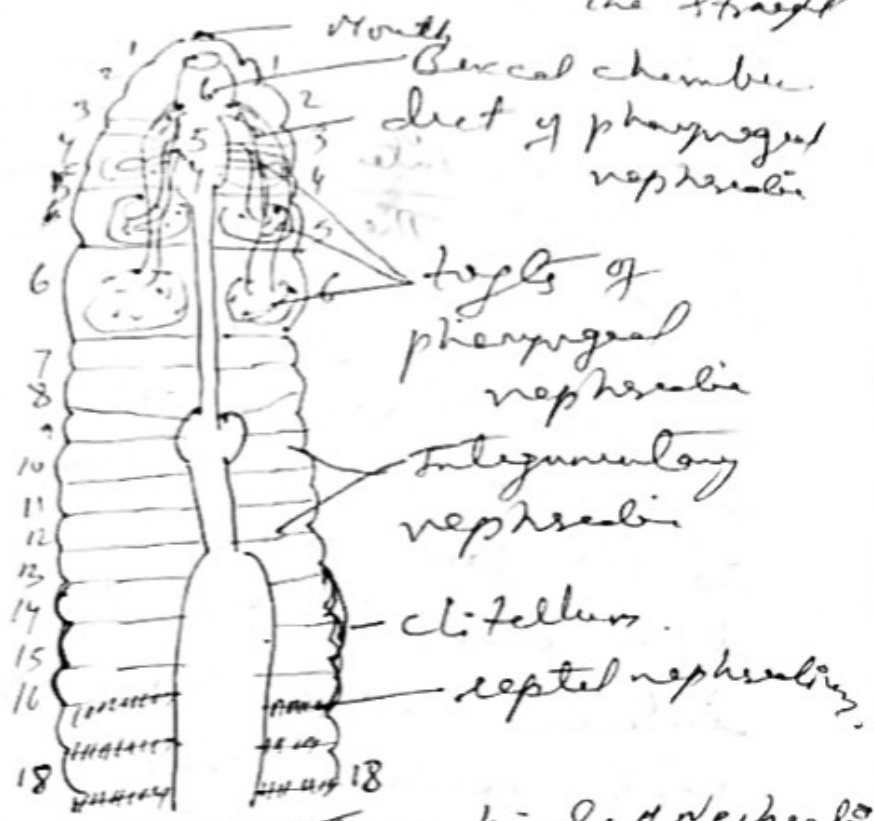 the straight
Mouth
Buccal chamber
duct of pharyngeal
nephridia
tufts of
pharyngeal
nephridia
Integumentary
nephridia
clitellum.
septal nephridium
1 1
2 2
3 3
4 4
5 5
6 6
7
8
9
10
11
12
13
14
15
16
18 18